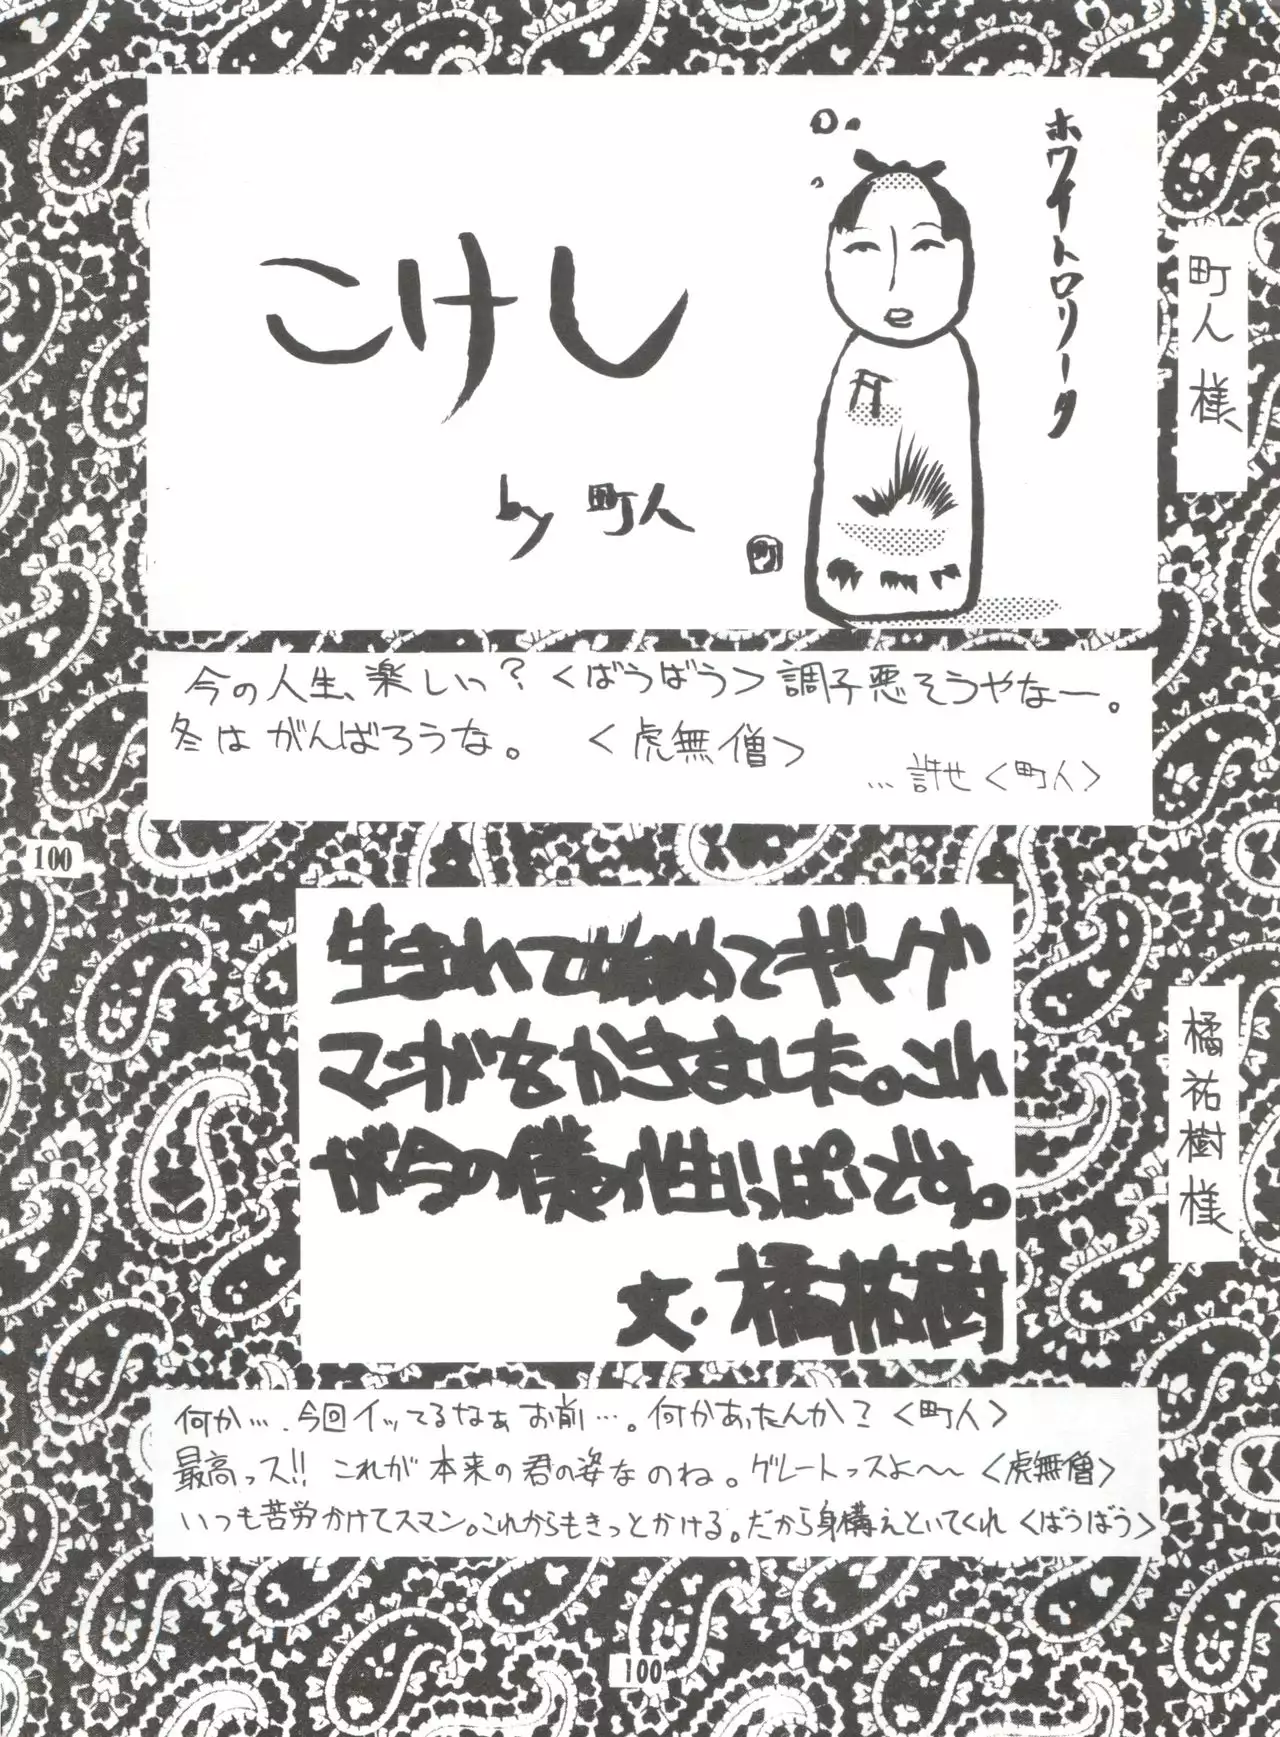 ホワイトロリータ
町人様
こけし
by 町人
町
今の人生、楽しいっ?<ばうばう>調子悪そうやなー。
冬はがんばろうな。 <虎無僧>
…許せ<町人>
100
生まれて初めてギャグ
マンガをかきました。これ
が今の僕の精一っぱいです。
文・橘祐樹
橘祐樹様
何か…今回イッてるなぁお前…。何かあったんか?<町人>
最高っス!!これが本来の君の姿なのね。グレートっスよ〜〜<虎無僧>
いつも苦労かけてスマン。これからもきっとかける。だから身構えといてくれ<ばうばう>
100